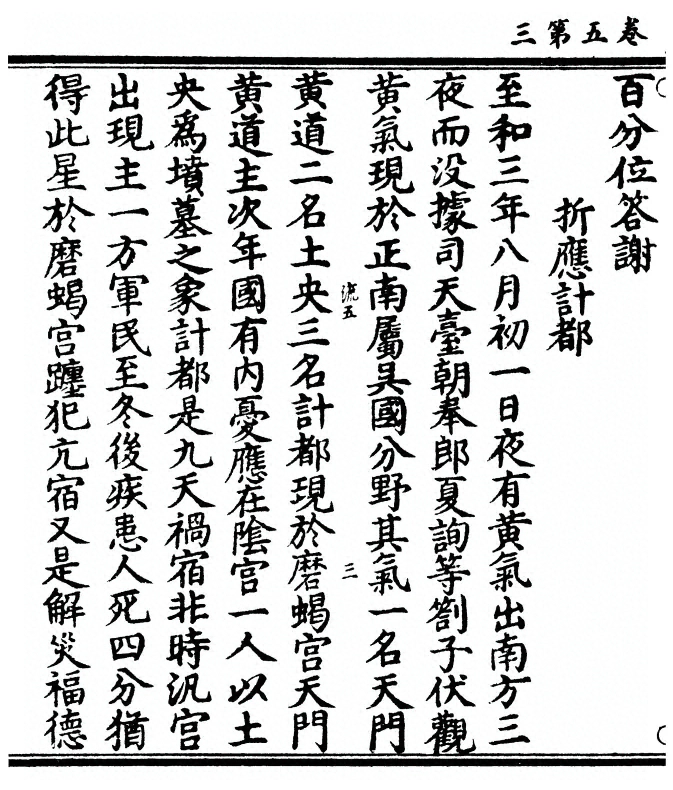 卷五第三
百分位答謝
折應計都
至和三年八月初一日夜有黃氣出南方三
夜而没據司天臺朝奉郎夏詢等劄子伏觀
黃氣現於正南屬吳國分野其氣一名天門
流五
三
黃道二名土央三名計都現於磨蝎宫天門
黃道主次年國有内憂應在陰宫一人以土
央爲墳墓之象計都是九天禍宿非時汎宫
出現主一方軍民至冬後疾患人死四分猶
得此星於磨蝎宫躔犯亢宿又是解災福德